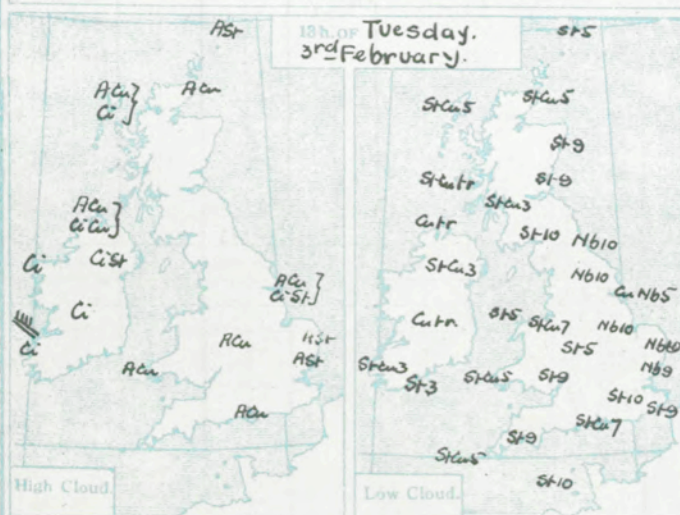 13h. OF Tuesday.
3rd February.
ASt
ACu
ACu
Ci
ACu
CiCu
Ci
CiSt
Ci
Ci
ACu
Ci-St
ASt
ASt
ACu
ACu
ACu
High Cloud.
St5
StCu5
StCu5
St9
St9
StCutr
StCu3
Cutr
St10
Nb10
StCu3
Nb10
CuNb5
Cutr
St5
StCu7
Nb10
St5
Nb10
Nb9
StCu3
St3
StCu5
St9
St10
St9
StCu7
St9
StCu5
St10
Low Cloud.